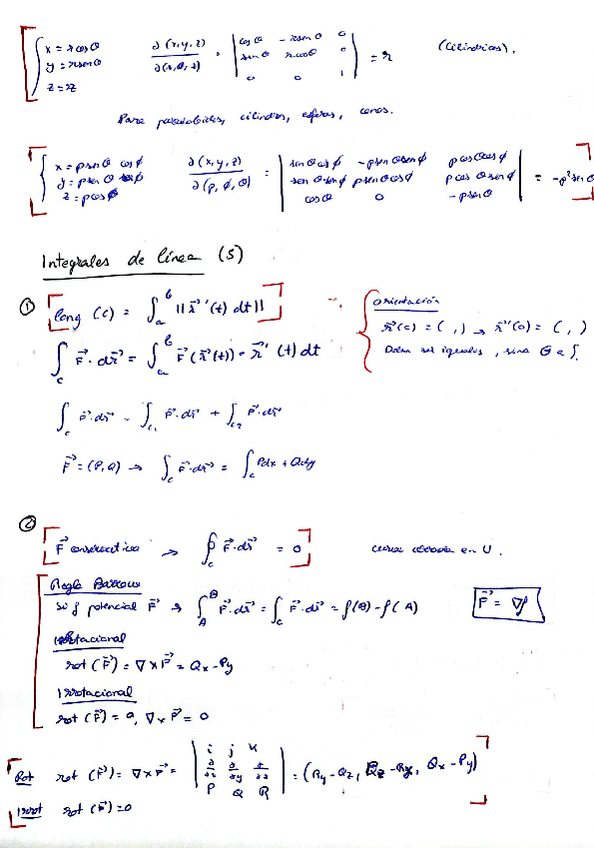 x = r cosθ
y = r senθ
z = z
∂(x,y,z) / ∂(r,θ,z) = | cosθ -r senθ 0 |
| senθ r cosθ 0 |
| 0 0 1 | = r (Cilíndricas).
Para paraboloides, cilindros, esferas, conos.
x = ρ senθ cosϕ
y = ρ senθ senϕ
z = ρ cosϕ
∂(x,y,z) / ∂(ρ,ϕ,θ) = | senθ cosϕ -ρ senθ senϕ ρ cosθ cosϕ |
| senθ senϕ ρ senθ cosϕ ρ cosθ senϕ |
| cosθ 0 -ρ senθ | = -ρ² senθ
Integrales de línea (5)
① long (c) = ∫ₐᵇ ||r⃗'(t) dt||
orientación
r⃗(0) = ( , ) → r⃗'(0) = ( , )
Deben ser iguales, sino ⊖ a ∫.
∫_c F⃗·dr⃗ = ∫ₐᵇ F⃗(r⃗(t))·r⃗'(t) dt
∫_c F⃗·dr⃗ = ∫_c1 F⃗·dr⃗ + ∫_c2 F⃗·dr⃗
F⃗ = (P,Q) → ∫_c F⃗·dr⃗ = ∫_c Pdx + Qdy
② F⃗ conservativa → ∮_c F⃗·dr⃗ = 0 curva cerrada en U.
Regla Barrow
Si f potencial F⃗ → ∫_A^B F⃗·dr⃗ = ∫_c F⃗·dr⃗ = f(B) - f(A)
F⃗ = ∇f
Rotacional
rot (F⃗) = ∇ × F⃗ = Qx - Py
Irrotacional
rot (F⃗) = 0, ∇ × F⃗ = 0
Rot rot (F⃗) = ∇ × F⃗ = | i j k |
| ∂/∂x ∂/∂y ∂/∂z |
| P Q R | = (Ry - Qz, Pz - Rx, Qx - Py)
Irrot rot (F⃗) = 0